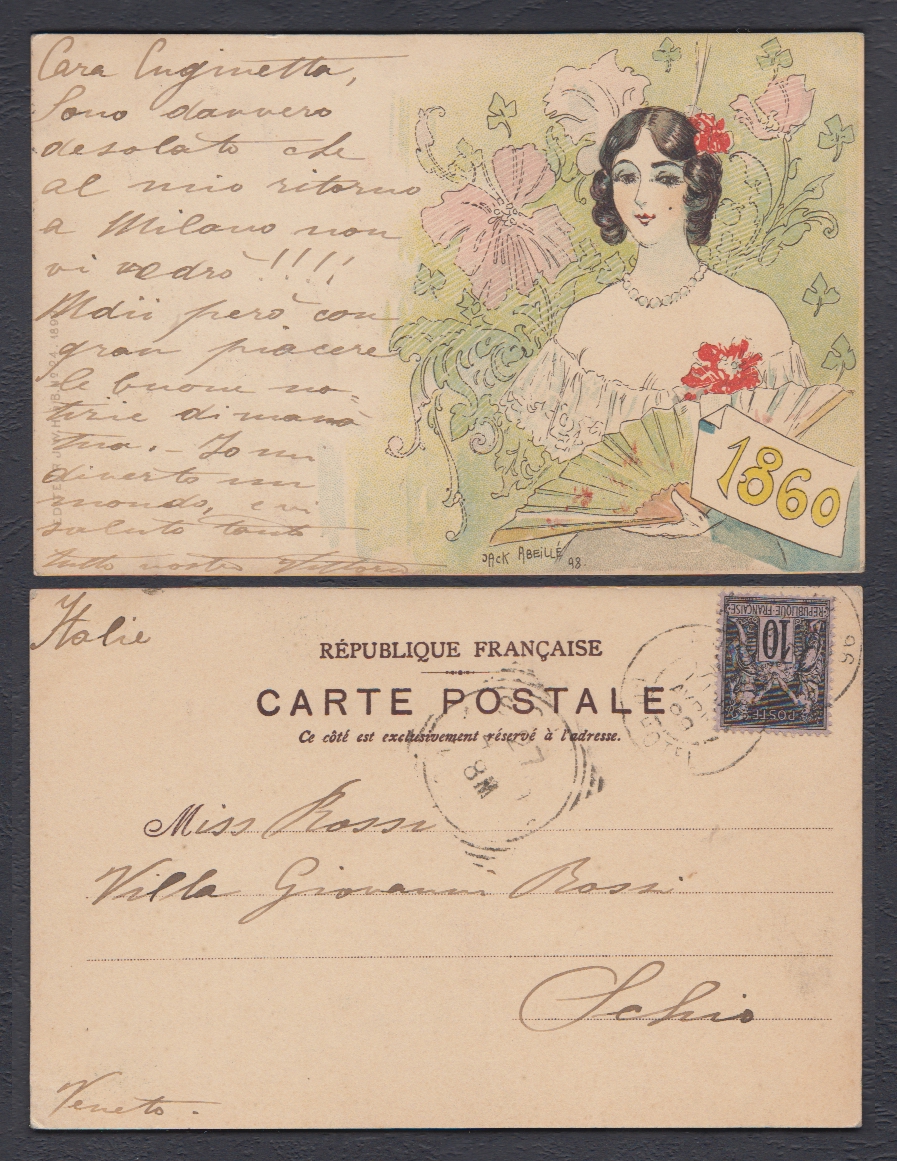 Cara Cuginetta,
Sono davvero
desolato che
al mio ritorno
a Milano non
vi vedrò !!!!
Udii però con
gran piacere
le buone no=
tizie di
Io mi
diverto un
mondo, e vi
saluto tanto.
tutto vostro
JACK ABEILLÉ
98.
1860
Italie
RÉPUBLIQUE FRANÇAISE
CARTE POSTALE
Ce côté est exclusivement réservé à l'adresse.
REPUBLIQUE-FRANÇAISE
10
POSTES
8M
Miss Rossi
Villa Giovanni Rossi
Schio
Veneto.